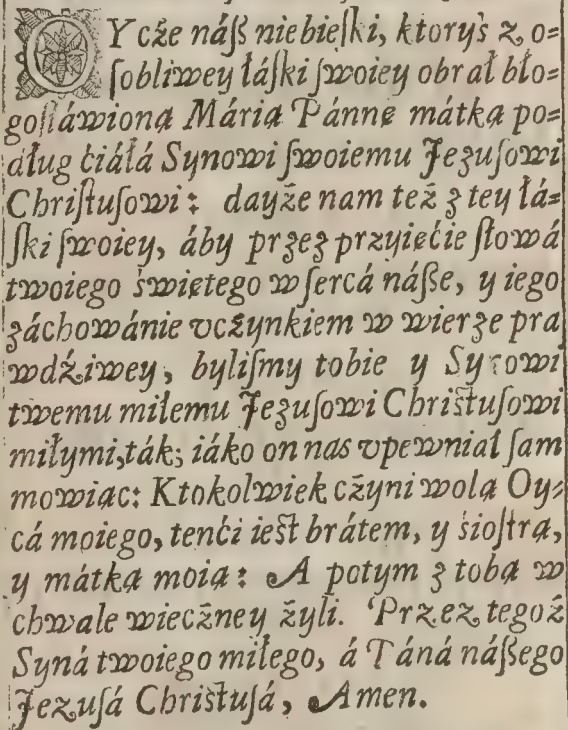 OYcże náß niebieſki, ktoryś z o=
ſobliwey łáſki ſwoiey obrał bło=
goſłáwioną Márią Pánnę mátką po=
dług ćiáłá Synowi ſwoiemu Jezuſowi
Chriſtuſowi: dayże nam też z tey łá=
ſki ſwoiey, áby przez przyięćie ſłowá
twoiego świętego w ſercá náße, y iego
záchowánie vczynkiem w wierze pra
wdźiwey, byliſmy tobie y Synowi
twemu miłemu Jezuſowi Chriſtuſowi
miłymi, ták; iáko on nas vpewniał ſam
mowiąc: Ktokolwiek cżyni wolą Oy=
cá moiego, tenći ieſt brátem, y śioſtrą,
y mátką moią: A potym z tobą w
chwale wiecżney żyli. Przez tegoż
Syná twoiego miłego, á Páná náßego
Jezuſá Chriſtuſá, Amen.